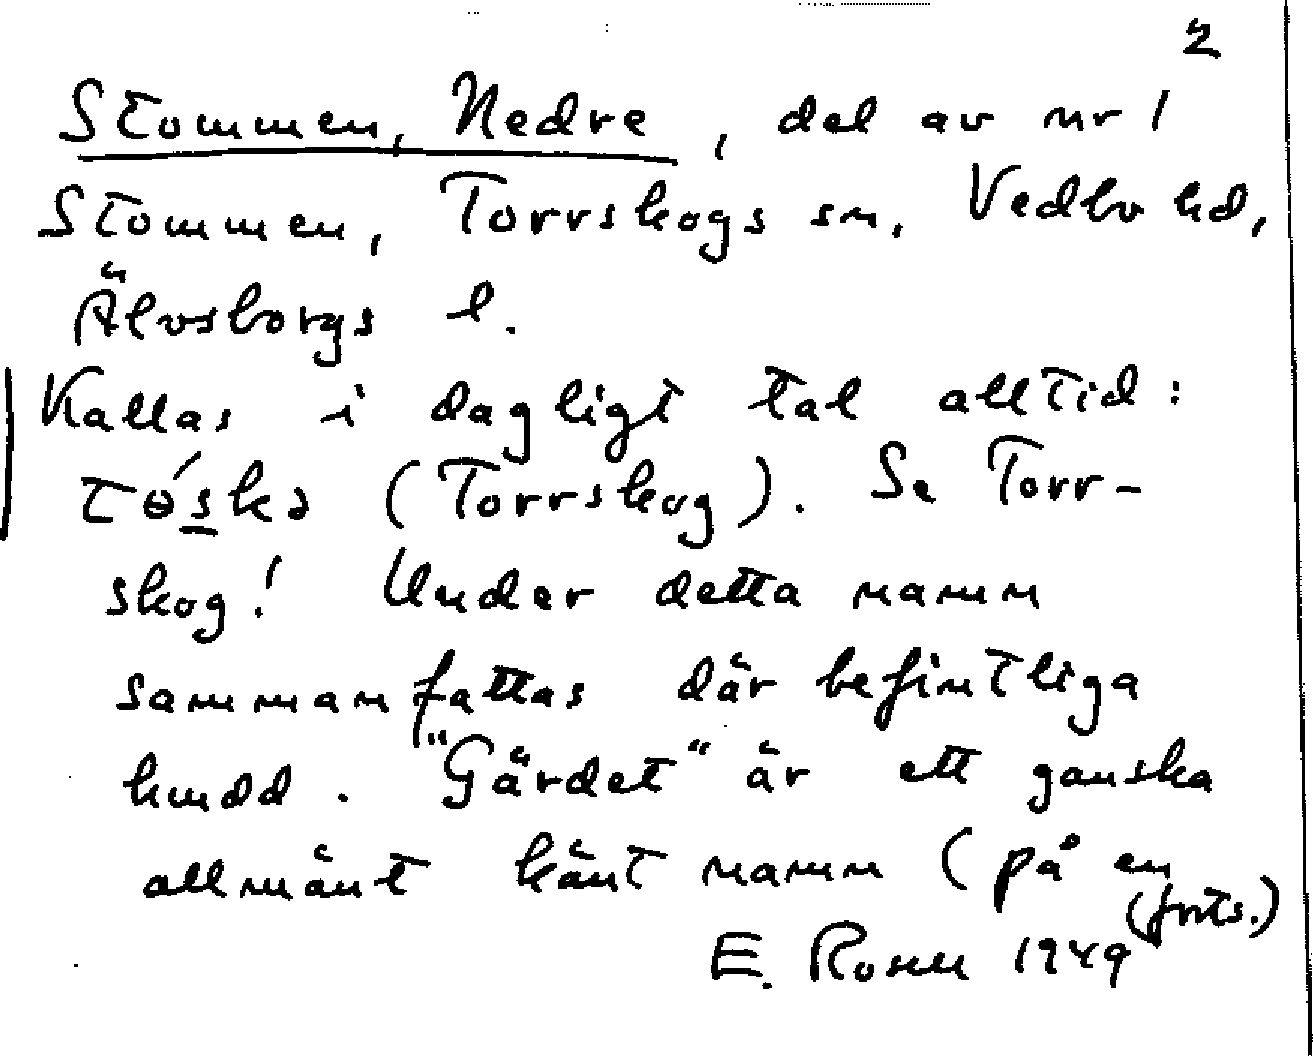 2
Stommen, Nedre, del av nr 1
Stommen, Torrskogs sn, Vedbo hd,
Älvsborgs l.
Kallas i dagligt tal alltid:
(Torrskog). Se Torr-
skog! Under detta namn
sammanfattas där befintliga
"Gärdet" är ett ganska
allmänt känt namn (på en
(forts.)
E. Rosell 1949